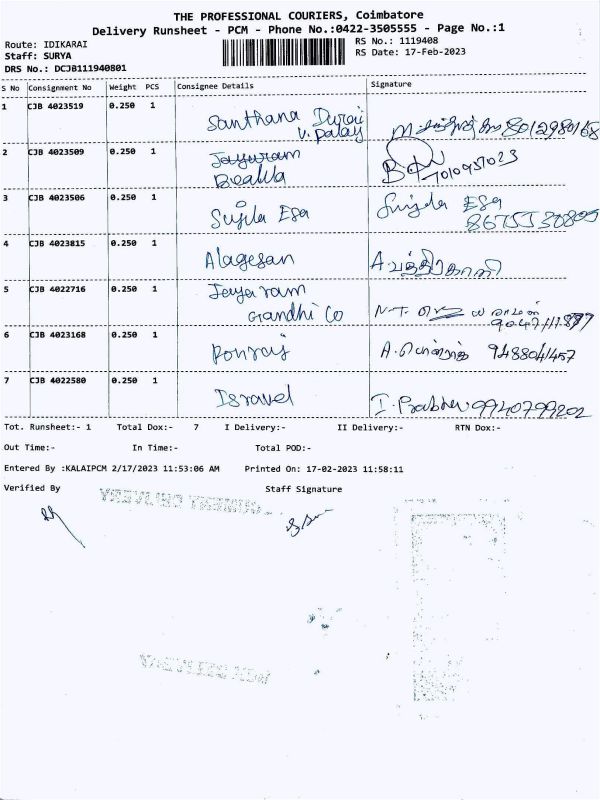 THE PROFESSIONAL COURIERS, Coimbatore
Delivery Runsheet - PCM - Phone No.:0422-3505555 - Page No.:1
Route: IDIKARAI
RS No.: 1119408
Staff: SURYA
RS Date: 17-Feb-2023
DRS No.: DCJB111940801
S No Consignment No Weight PCS Consignee Details Signature
1 CJB 4023519 0.250 1 Santhana Durai
V. Palay 8012980168
2 CJB 4023509 0.250 1 Jayaram
Bealila 7010957023
3 CJB 4023506 0.250 1 Sujila Esa Sujila Esa
4 CJB 4023815 0.250 1 Alagesan
5 CJB 4022716 0.250 1 Jeyaram N.T.
Gandhi Co
6 CJB 4023168 0.250 1 Ponraj A. பொன்ராஜ் 9488041457
7 CJB 4022580 0.250 1 Isravel I. Prabhu 9940799202
Tot. Runsheet:- 1 Total Dox:- 7 I Delivery:- II Delivery:- RTN Dox:-
Out Time:- In Time:- Total POD:-
Entered By :KALAIPCM 2/17/2023 11:53:06 AM Printed On: 17-02-2023 11:58:11
Verified By Staff Signature